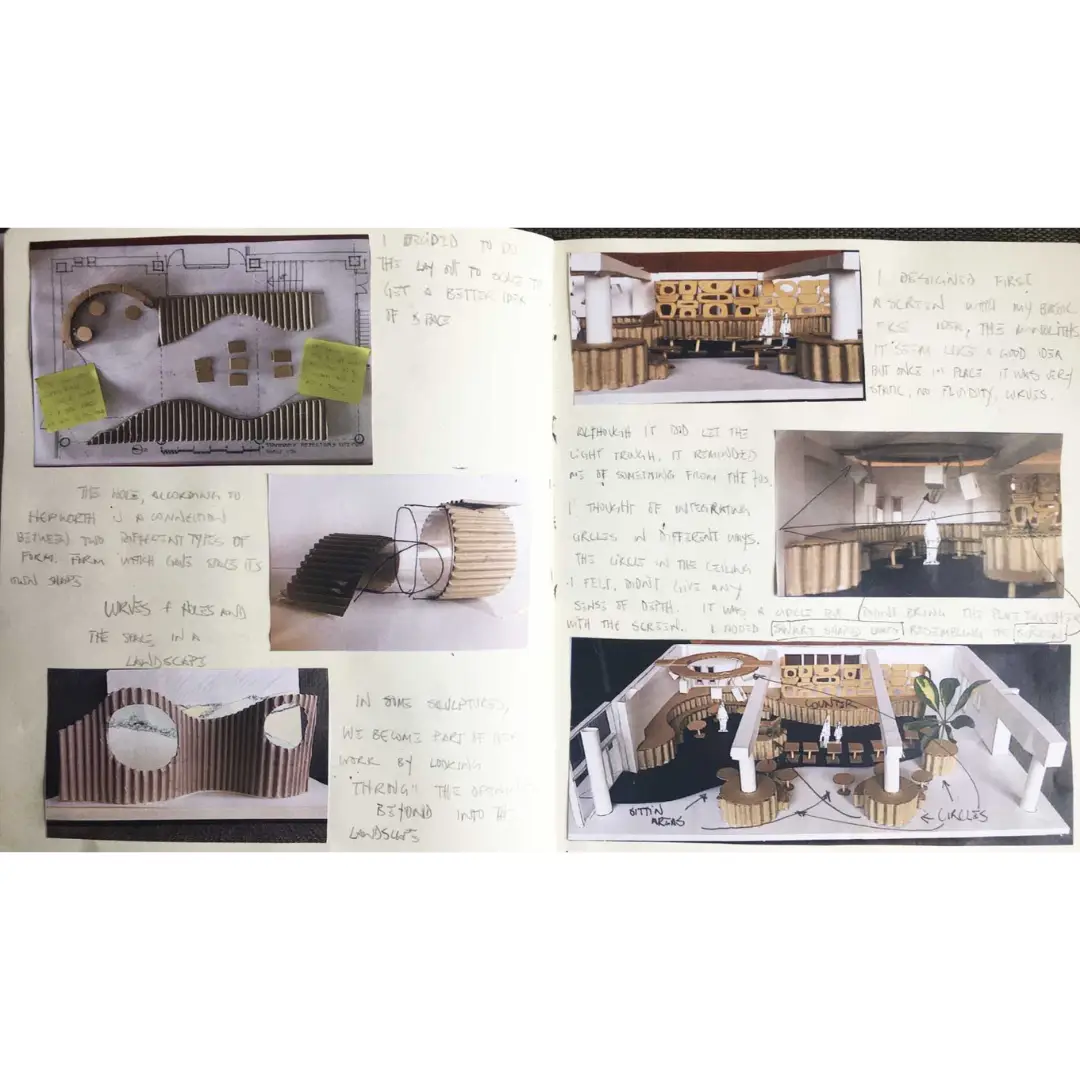 I DECIDED TO DO
THE LAY OUT TO SCALE TO
GET A BETTER IDEA
OF SPACE
THE HOLE, ACCORDING TO
HEPWORTH IS A CONNECTION
BETWEEN TWO DIFFERENT TYPES OF
FORM. FORM WHICH GIVE SPACE ITS
OWN SHAPE
CURVES + HOLES AND
THE SPACE IN A
LANDSCAPE
IN SOME SCULPTURES,
WE BECOME PART OF
WORK BY LOOKING
THE
BEYOND INTO THE
LANDSCAPE
I DESIGNED FIRST
A SCREEN WITH MY BASIC
IDEA, THE MONOLITHS
IT SEEM LIKE A GOOD IDEA
BUT ONCE IN PLACE IT WAS VERY
STATIC, NO FLUIDITY, CURVES.
ALTHOUGH IT DID LET THE
LIGHT TROUGH, IT REMINDED
ME OF SOMETHING FROM THE 70s.
I THOUGHT OF INTEGRATING
CIRCLES IN DIFFERENT WAYS.
THE CIRCLE IN THE CEILING
I FELT, DIDN'T GIVE ANY
SENSE OF DEPTH. IT WAS A CIRCLE BUT DIDN'T BRING THE PLACE TOGETHER
WITH THE SCREEN. I ADDED SHAPED RESEMBLING THE SCREEN
COUNTER
SITTIN
AREAS
← CIRCLES